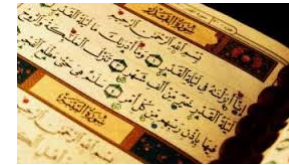 سُورَةُ القَدْرِ
بِسْمِ اللَّهِ الرَّحْمَٰنِ الرَّحِيمِ
إِنَّا أَنزَلْنَاهُ فِي لَيْلَةِ الْقَدْرِ ۝ وَمَا أَدْرَاكَ مَا لَيْلَةُ الْقَدْرِ ۝
لَيْلَةُ الْقَدْرِ خَيْرٌ مِّنْ أَلْفِ شَهْرٍ ۝ تَنَزَّلُ الْمَلَائِكَةُ وَالرُّوحُ
فِيهَا بِإِذْنِ رَبِّهِم مِّن كُلِّ أَمْرٍ ۝ سَلَامٌ هِيَ حَتَّىٰ مَطْلَعِ الْفَجْرِ
سُورَةُ البَيِّنَةِ
بِسْمِ اللَّهِ الرَّحْمَٰنِ الرَّحِيمِ